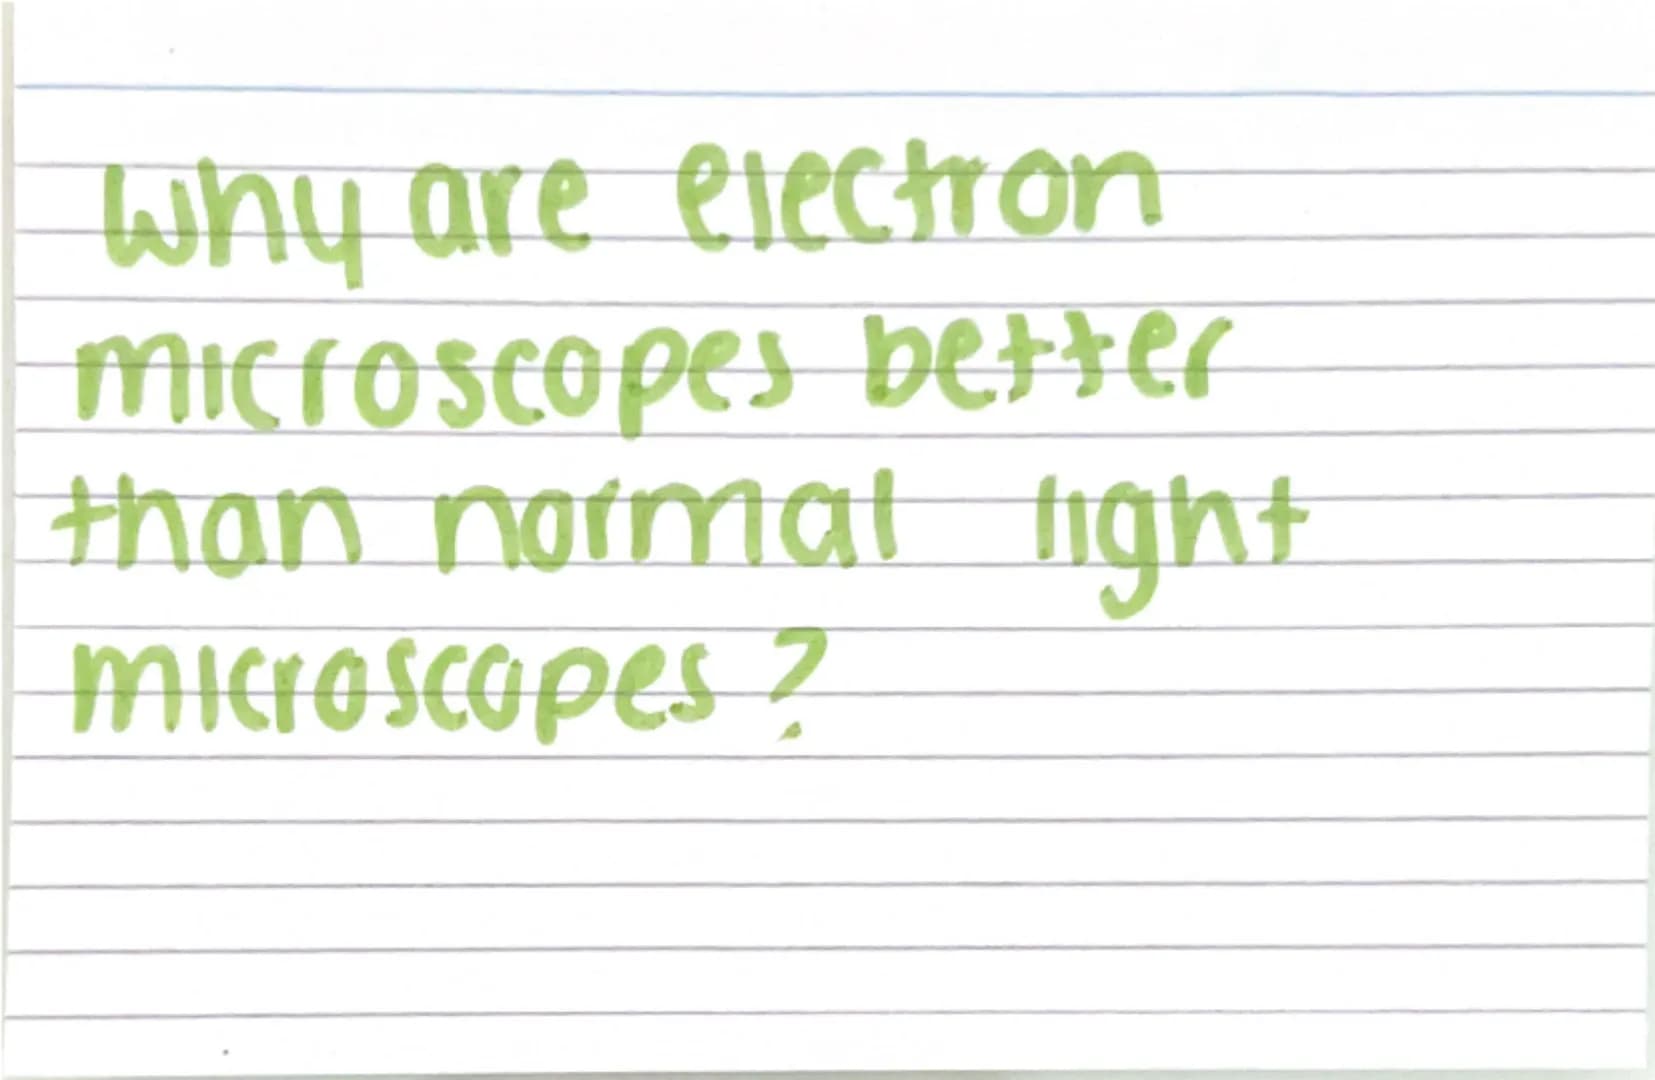 why are electron
microscopes better
than normal light
microscopes?